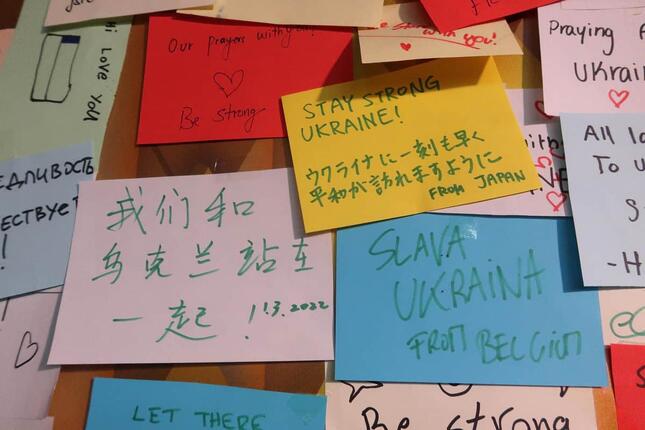 Hi Love You
Our prayers with you!
Be strong
with you!
Praying
Ukrai
STAY STRONG
UKRAINE!
ウクライナに一刻も早く
平和が訪れますように
FROM JAPAN
All
To
ЕДЛИВОСТЬ
ЕСТВУЕТ
!
我们和
乌克兰站在
一起! 1.3.2022
SLAVA
UKRAINA
FROM BELGIUM
LET THERE
Be strong